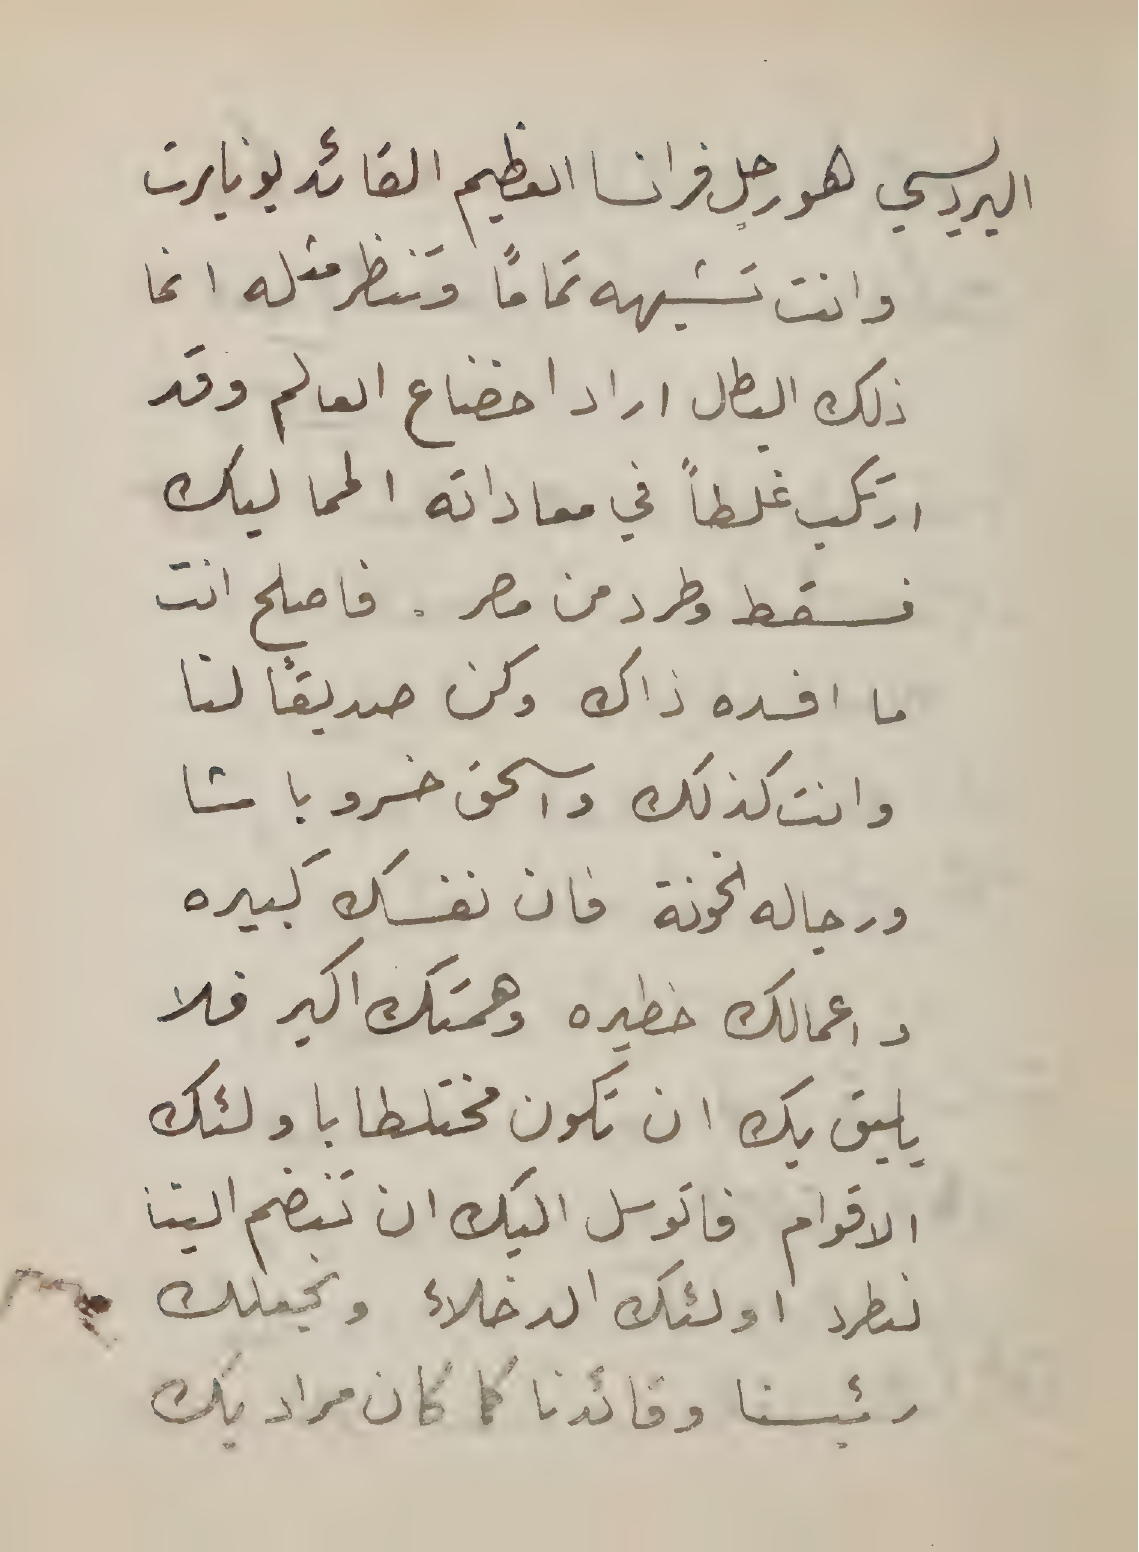 البرديسي هو رجل فرانسا العظيم القائد بونابرت
وانت تشبهه تمامًا وتنظر مثله انما
ذلك البطل اراد اخضاع العالم وقد
ارتكب غلطاً في معاداته المماليك
فسقط وطرد من مصر . فاصلح انت
ما افسده ذاك وكن صديقًا لنا
وانت كذلك واسحق خسرو باشا
ورجاله الخونة فان نفسك كبيره
واعمالك خطيره وهمتك اكبر فلا
يليق بك ان تكون مختلطا باولئك
الاقوام فاتوسل اليك ان تنضم الينا
لنطرد اولئك الدخلاء ونجعلك
رئيسنا وقائدنا كما كان مراد بك